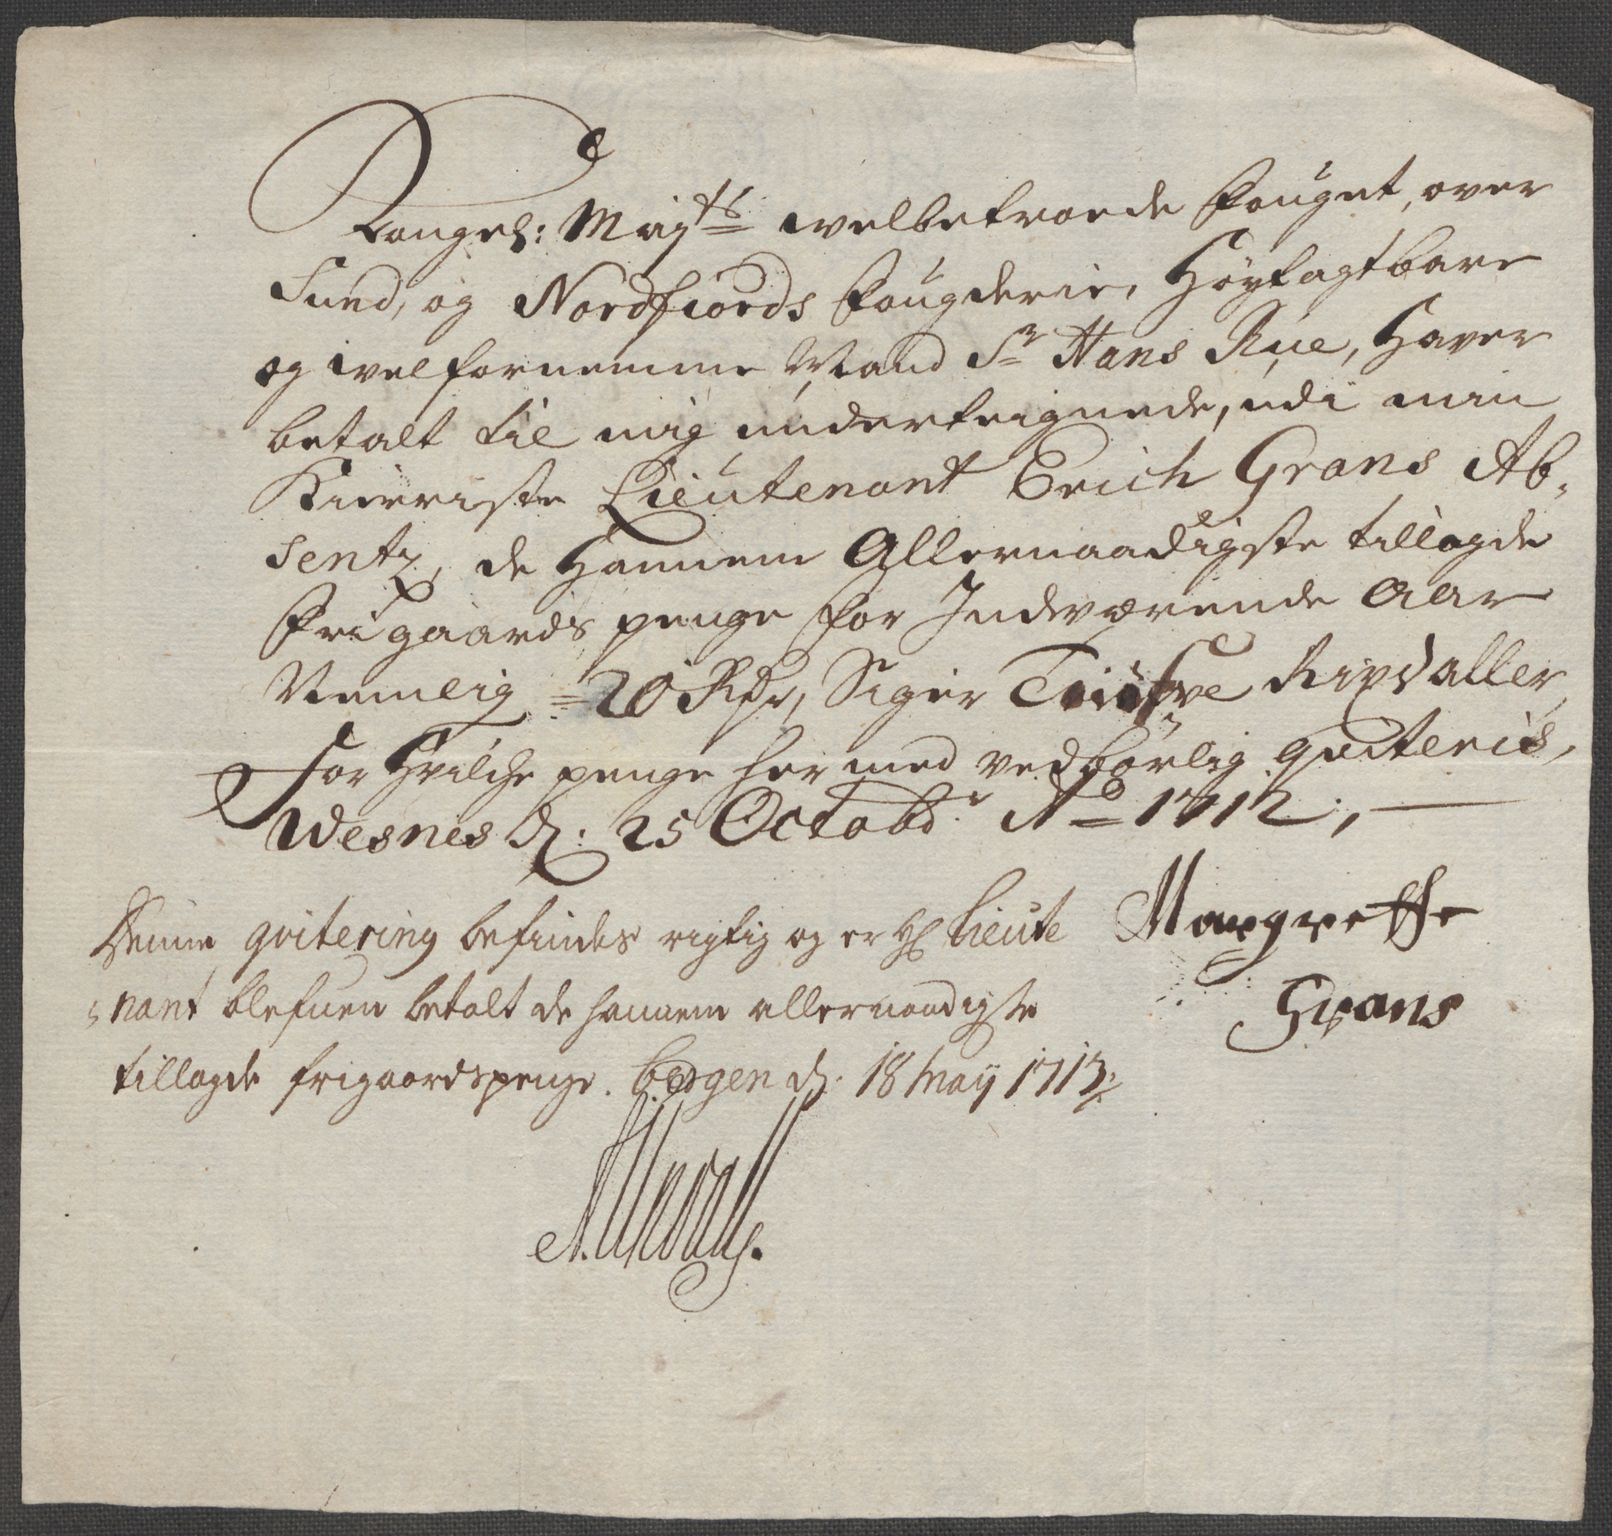 Kongel: Maÿts welbetroede Fouget, over
Sund, og Nordfiords Fougderie, Höÿagtbare
og welfornemme Mand Sr Hans Rüe, Haver
betalt til mig underteignede, udi min
Kieriste Lieutenant Erich Grans Ab,
sentz, de Hannem Allernaadigste tillagde
Frigaards penge for Indværende Aar
Nemlig = 20 Rdr, Siger Tiufve Rixdaller,
for Hvilche penge hermed vedbörlig qviteris,
Wesnes d: 25 Octobr Ao 1712,
Margrette
Grans
Denne qvitering befindes rigtig og er Hr Lieute
nant blefuen betalt de hannem allernaadigste
tillagde frigaardspenge. bergen d: 18 maÿ 1713: